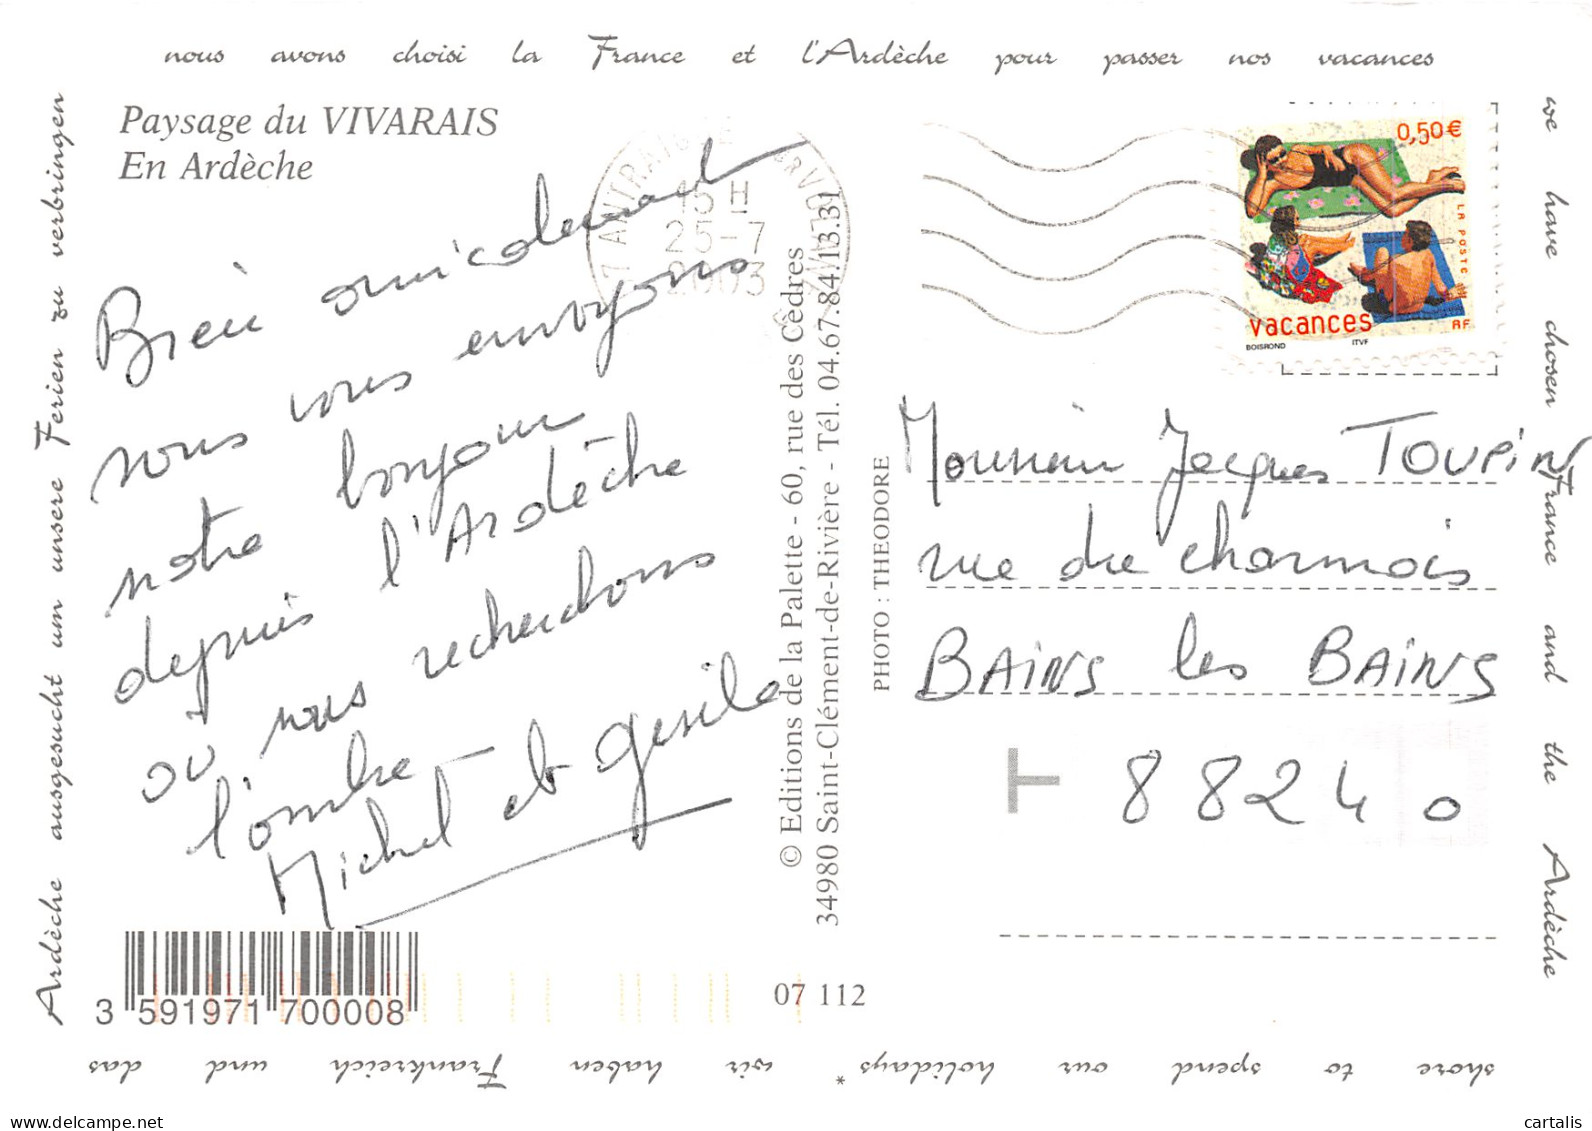 nous avons choisi la France et l'Ardèche pour passer nos vacances
Paysage du VIVARAIS
En Ardèche
Bien amicalement
nous vous envoyons
notre bonjour
depuis l'Ardèche
où nous recherchons
l'ombre
Michel et Gisèle
3 591971 700008
07 112
© Editions de la Palette - 60, rue des Cèdres
34980 Saint-Clément-de-Rivière - Tél. 04.67.84.13.31
PHOTO : THEODORE
15 H
25-7
2003
0,50€
LA POSTE
vacances
RF
BOISROND ITVF
Monsieur Jacques TOUPIN
rue du charmois
BAINS les BAINS
T 88240
we have chosen France and the Ardèche
shore to spend our holidays *
wir haben Frankreich und das
Ardèche ausgesucht um unsere Ferien zu verbringen
www.delcampe.net
cartalis